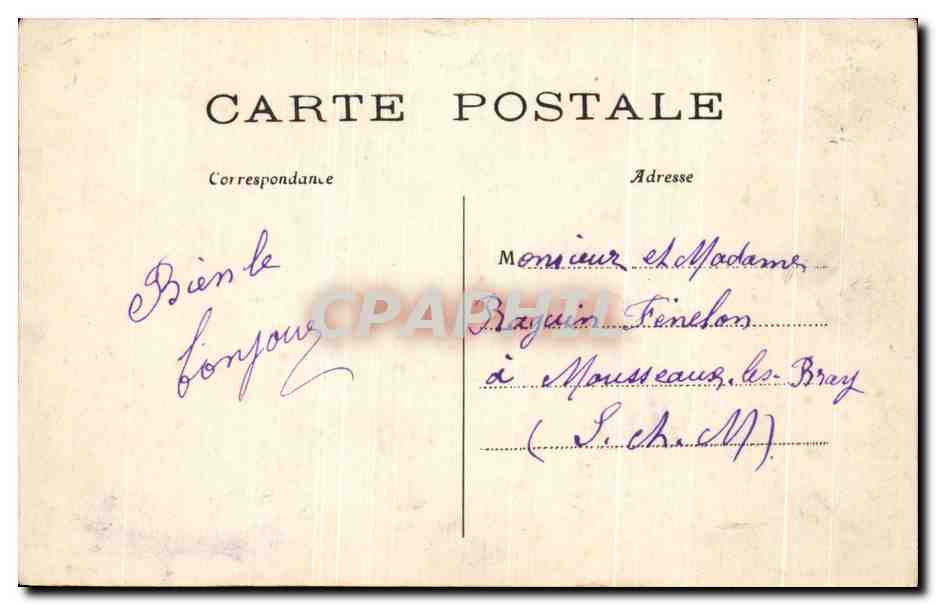 CARTE POSTALE
Correspondance
Adresse
Bien le
bonjour
Monsieur et Madame
Raguin Fénelon
à Mousseaux-les-Bray
(S. et. M)
CPAPHIL